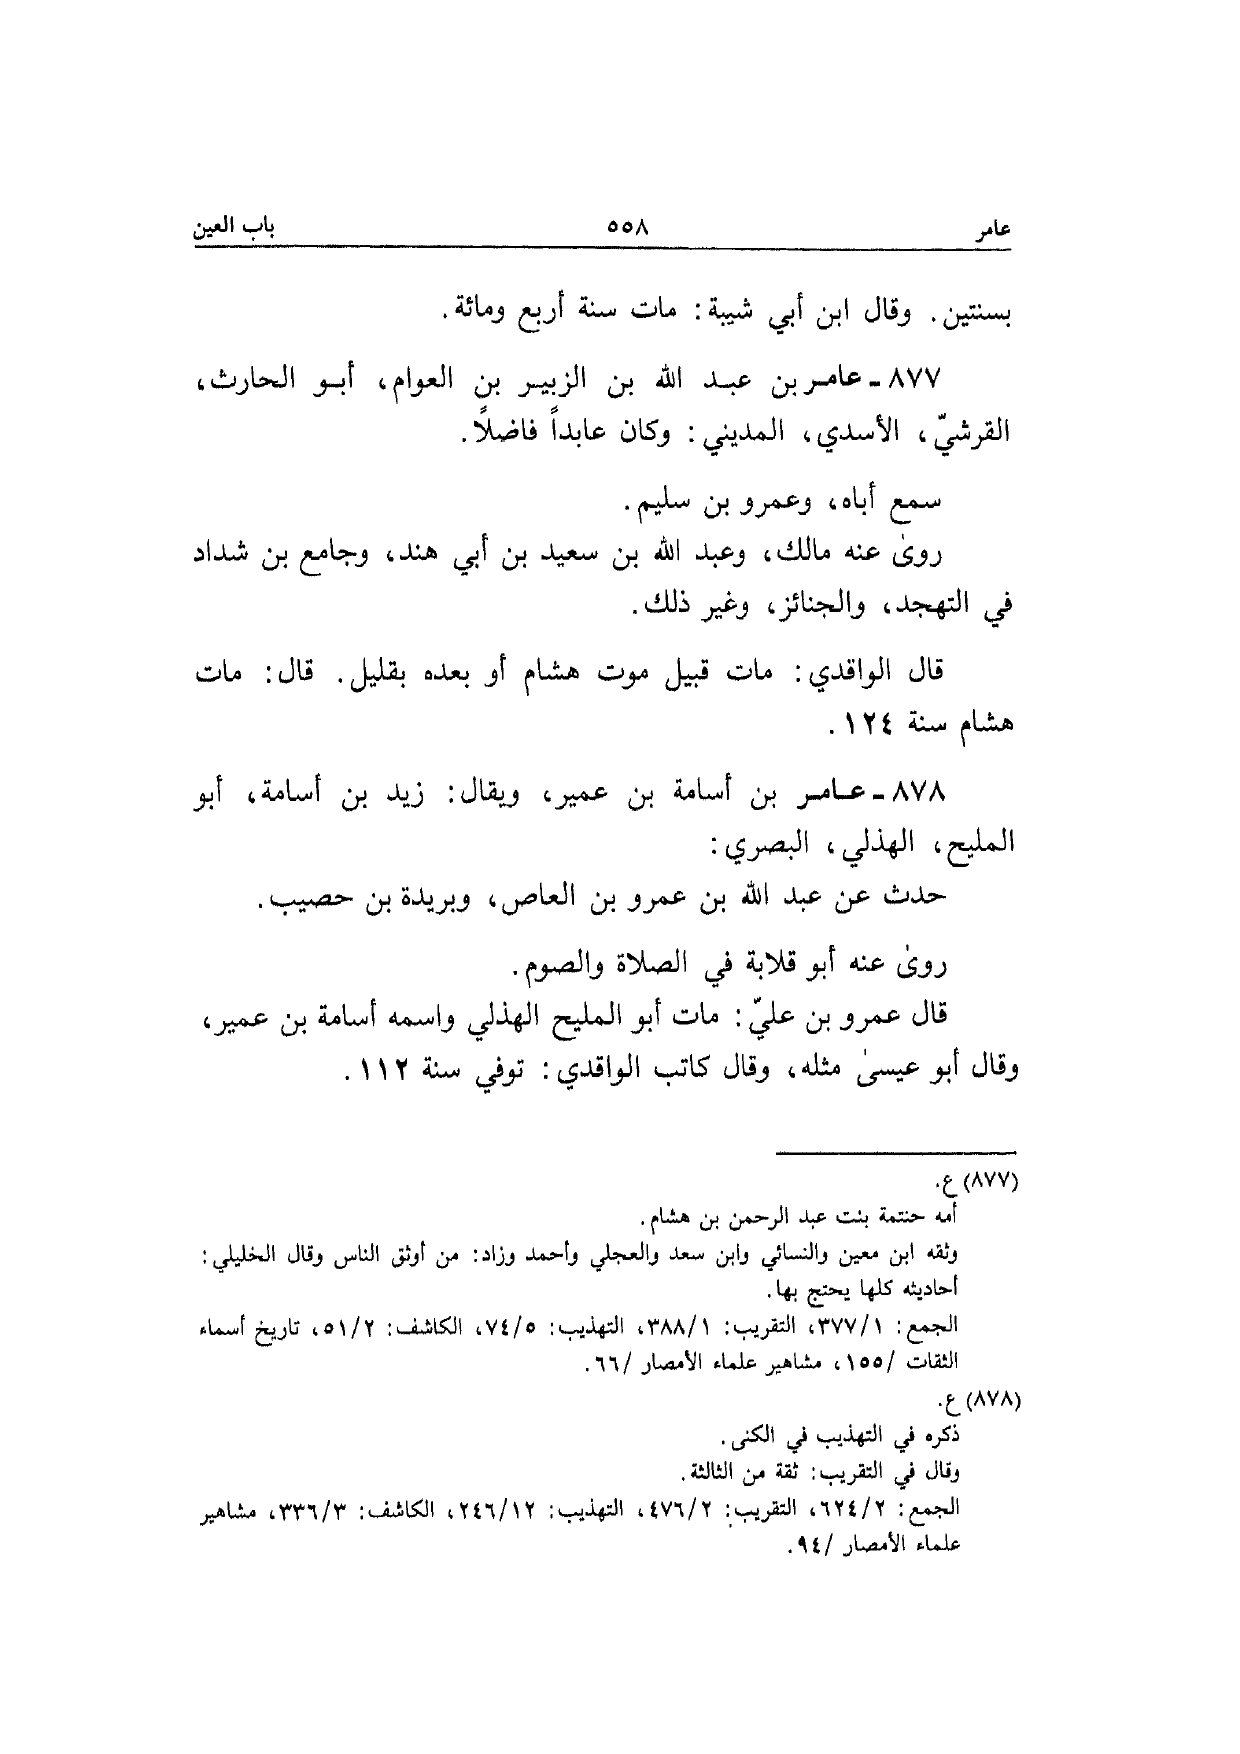 عامر ٥٥٨ باب العين
بسنتين. وقال ابن أبي شيبة: مات سنة أربع ومائة.
٨٧٧ - عامر بن عبد الله بن الزبير بن العوام، أبو الحارث،
القرشيّ، الأسدي، المديني: وكان عابداً فاضلًا.
سمع أباه، وعمرو بن سليم.
روىٰ عنه مالك، وعبد الله بن سعيد بن أبي هند، وجامع بن شداد
في التهجد، والجنائز، وغير ذلك.
قال الواقدي: مات قبيل موت هشام أو بعده بقليل. قال: مات
هشام سنة ١٢٤.
٨٧٨ - عامر بن أسامة بن عمير، ويقال: زيد بن أسامة، أبو
المليح، الهذلي، البصري:
حدث عن عبد الله بن عمرو بن العاص، وبريدة بن حصيب.
روىٰ عنه أبو قلابة في الصلاة والصوم.
قال عمرو بن عليّ: مات أبو المليح الهذلي واسمه أسامة بن عمير،
وقال أبو عيسىٰ مثله، وقال كاتب الواقدي: توفي سنة ١١٢.
(٨٧٧) ع.
أمه حنتمة بنت عبد الرحمن بن هشام.
وثقه ابن معين والنسائي وابن سعد والعجلي وأحمد وزاد: من أوثق الناس وقال الخليلي:
أحاديثه كلها يحتج بها.
الجمع: ٣٧٧/١، التقريب: ٣٨٨/١، التهذيب: ٧٤/٥، الكاشف: ٥١/٢، تاريخ أسماء
الثقات /١٥٥، مشاهير علماء الأمصار /٦٦.
(٨٧٨) ع.
ذكره في التهذيب في الكنى.
وقال في التقريب: ثقة من الثالثة.
الجمع: ٦٢٤/٢، التقريب: ٤٧٦/٢، التهذيب: ٢٤٦/١٢، الكاشف: ٣٣٦/٣، مشاهير
علماء الأمصار /٩٤.